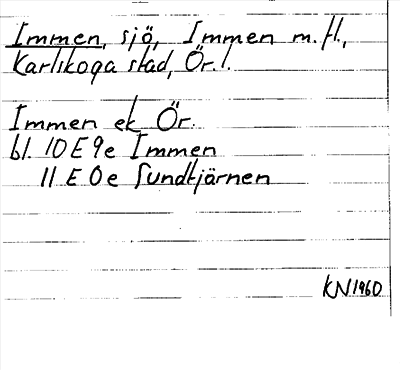 Immen, sjö, Immen m.fl.,
Karlskoga stad, Ör. l.
Immen ek Ör.
bl. 10 E 9e Immen
11 E 0e Sundtjärnen
KN 1960